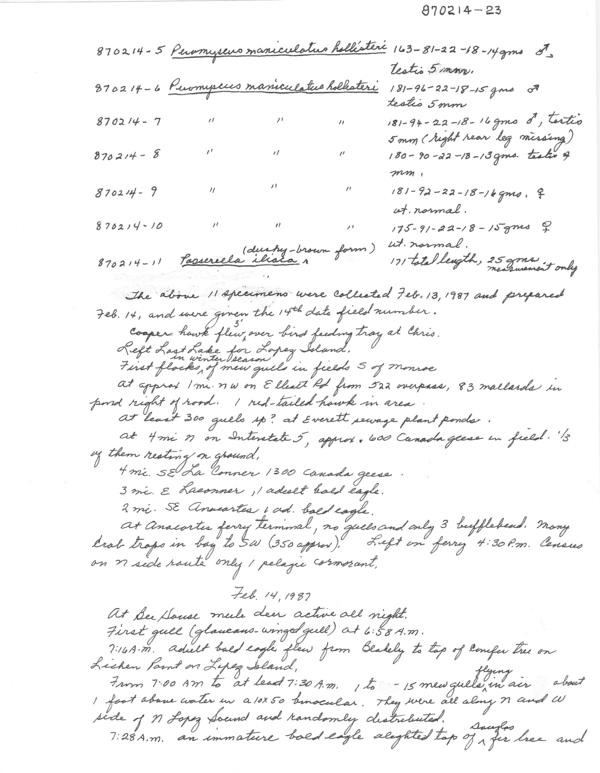 870214-23
870214-5 Peromyscus maniculatus hollisteri 163-81-22-18-14 gms ♂,
testis 5 mm.
870214-6 Peromyscus maniculatus hollisteri 181-96-22-18-15 gms ♂
testis 5 mm
870214-7 " " " 181-94-22-18-16 gms ♂, testis
5 mm (right rear leg missing)
870214-8 " " " 180-90-22-18-13 gms. testis 4
mm.
870214-9 " " " 181-92-22-18-16 gms. ♀
ut. normal.
870214-10 " " " 175-91-22-18-15 gms ♀
ut. normal.
870214-11 Passerella iliaca (dusky-brown form) 171 total length, 25 gms.
measurement only
The above 11 specimens were collected Feb. 13, 1987 and prepared
Feb. 14, and were given the 14th date field number.
Cooper hawk flew 3' over bird feeding tray at Chris.
Left Lost Lake for Lopez Island.
First flocks in winter season of mew gulls in fields S of Monroe
At approx 1 mi. NW on Elliott Rd from 522 overpass, 83 mallards in
pond right of road. 1 red-tailed hawk in area.
At least 300 gulls sp? at Everett sewage plant ponds.
At 4 mi N on Interstate 5, approx. 600 Canada geese in field. 1/3
of them resting on ground.
4 mi. SE La Conner 1300 Canada geese.
3 mi. E Laconner, 1 adult bald eagle.
2 mi. SE Anacortes 1 ad. bald eagle.
At Anacortes ferry terminal, no gulls and only 3 bufflehead. Many
crab traps in bay to SW (350 approx). Left on ferry 4:30 P.m. Census
on N side route only 1 pelagic cormorant.
Feb. 14, 1987
At Bee House mule deer active all night.
First gull (glaucous-winged gull) at 6:58 A.m.
7:16 A.m. adult bald eagle flew from Blakely to top of conifer tree on
Lichen Point on Lopez Island.
From 7:00 AM to at least 7:30 A.m. 1 to -15 mew gulls flying in air about
1 foot above water in a 10x50 binocular. They were all along N and W
side of N Lopez Sound and randomly distributed.
7:28 A.m. an immature bald eagle alighted top of Douglas fir tree and